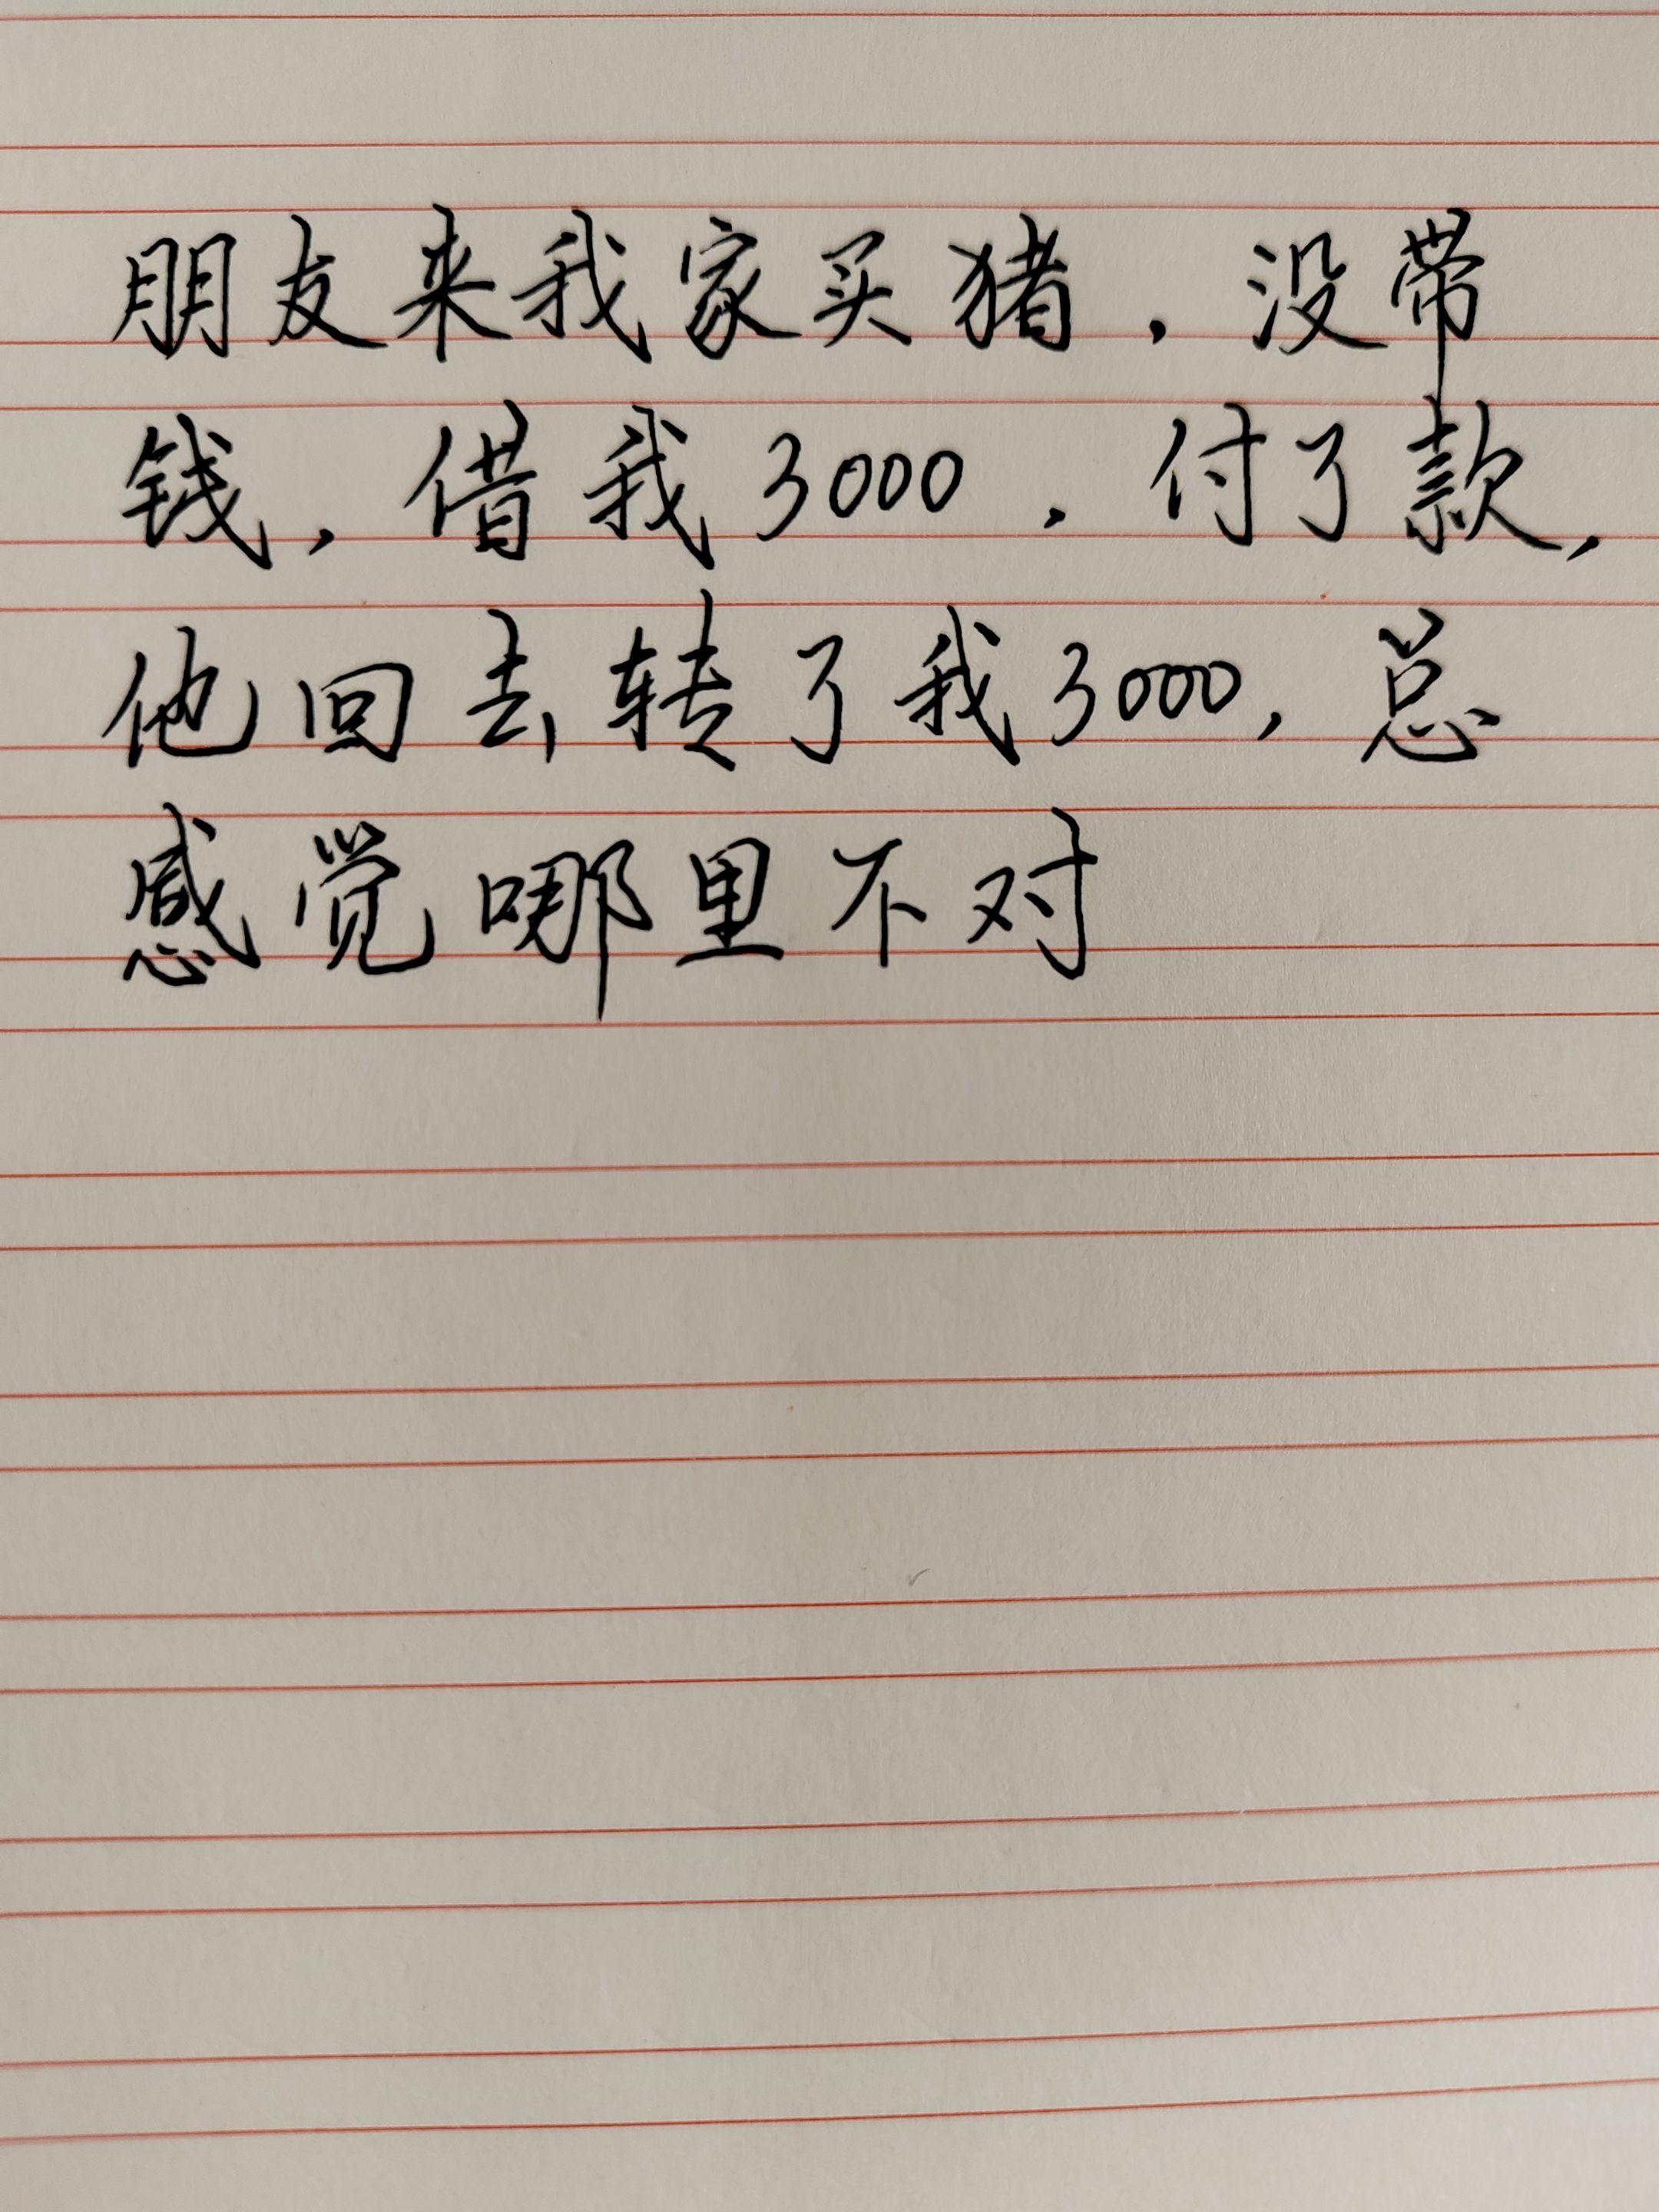 朋友来我家买猪，没带
钱，借我3000，付了款，
他回去转了我3000，总
感觉哪里不对